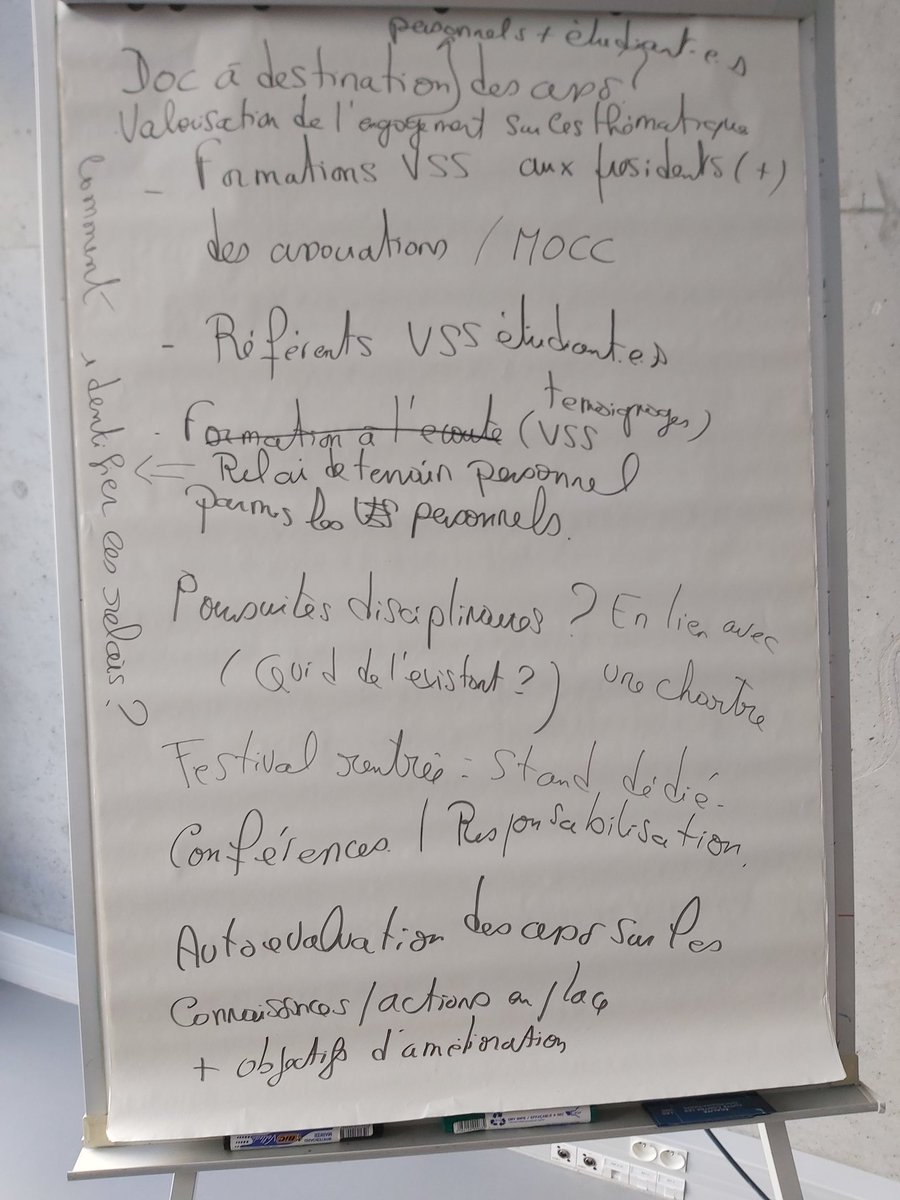 personnels + étudiant.e.s
Doc à destination des assos
Valorisation de l'engagement sur ces thématiques
- Formations VSS aux présidents (+)
des associations / MOCC
- Référents VSS étudiant.e.s
temoignages)
- Formation à l'écoute (VSS
Relai de terrain personnel
parmis les personnels.
Comment identifier ces relais ?
Poursuites disciplinaires ? En lien avec
(Quid de l'existant ?) une chartre
Festival rentrée : Stand dédié.
Conférences / Responsabilisation.
Autoevaluation des assos sur les
Connaissances / actions en place
+ objectifs d'amélioration
BIC